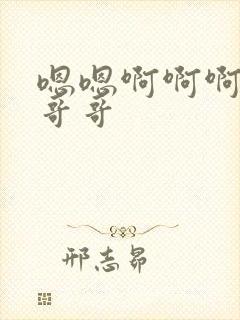 嗯嗯啊啊啊
哥哥
邢志昂